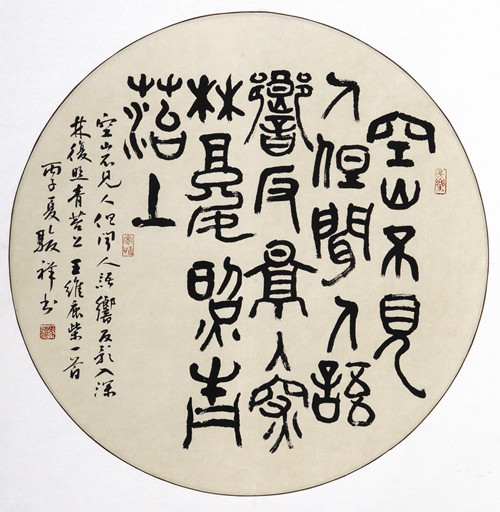 空山不見
人但聞人語
響反景入深
林復照青
苔上
空山不见人但闻人語響反影入深
林復照青苔上 王維鹿柴一首
丙子夏 祥书